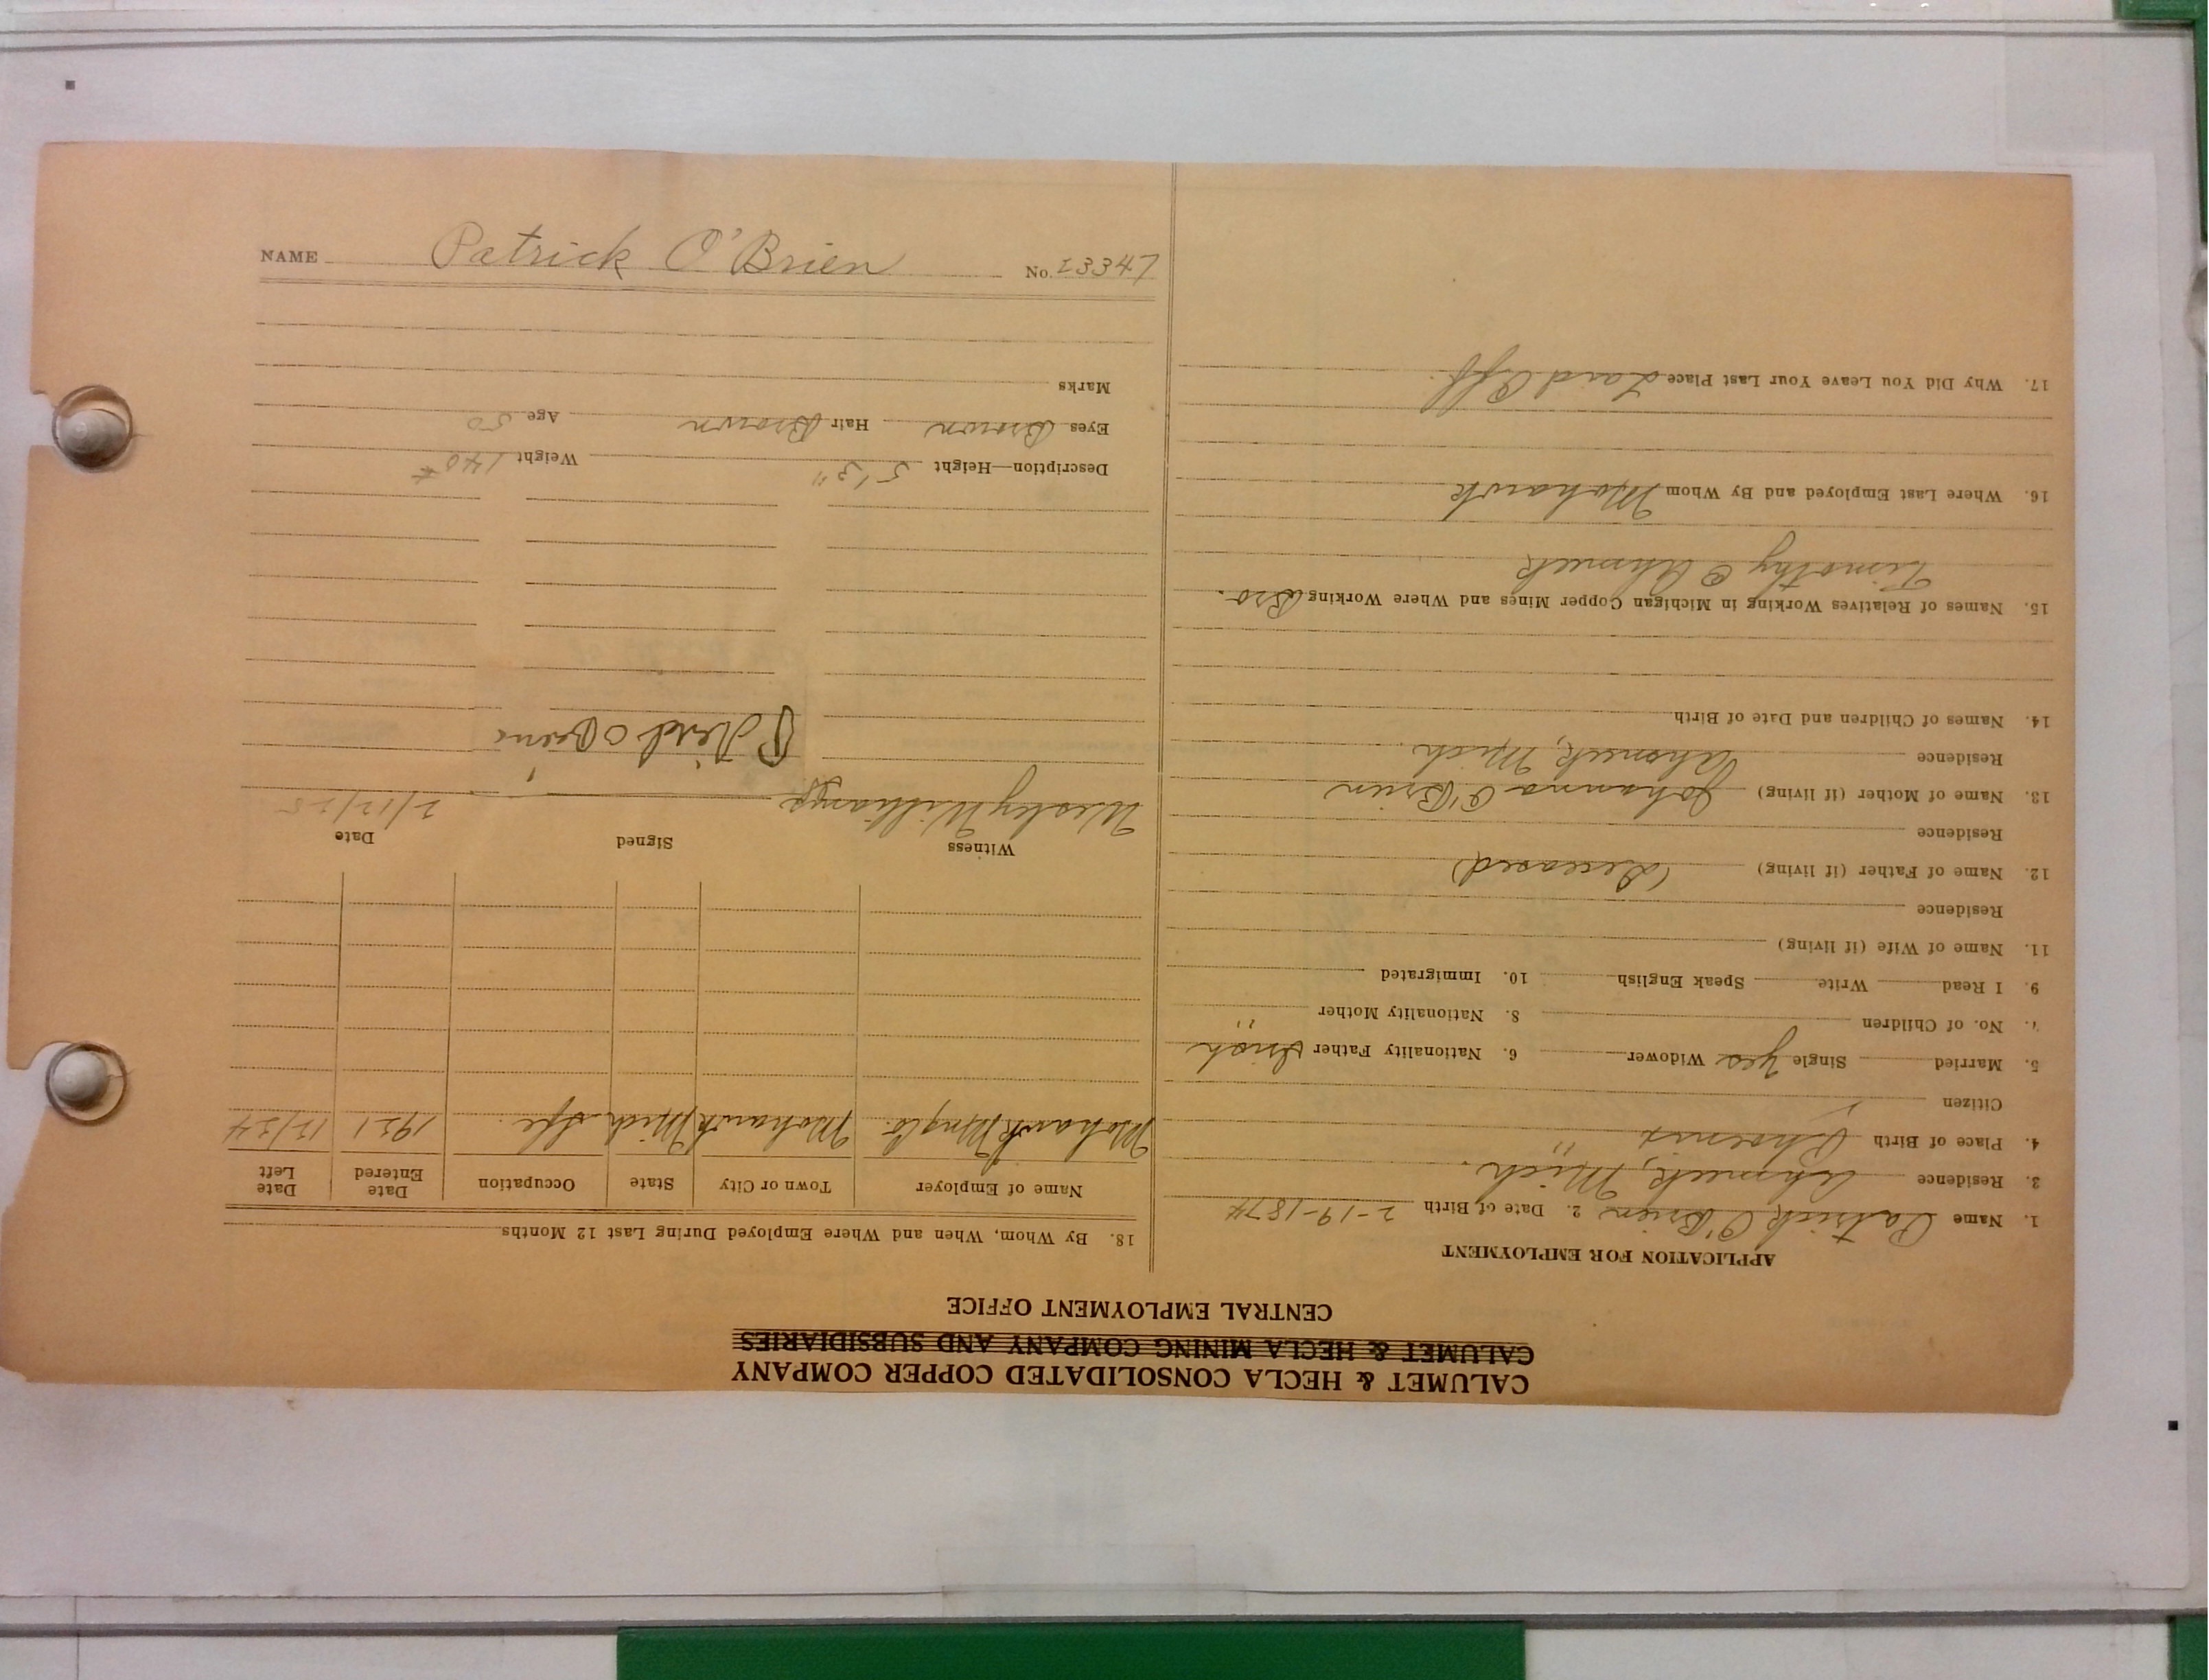 CALUMET & HECLA CONSOLIDATED COPPER COMPANY
CALUMET & HECLA MINING COMPANY AND SUBSIDIARIES
CENTRAL EMPLOYMENT OFFICE
APPLICATION FOR EMPLOYMENT
1. Name Patrick O'Brien 2. Date of Birth 2-19-1874
3. Residence Ahmeek, Mich.
4. Place of Birth Phoenix "
Citizen
5. Married Single Yes Widower 6. Nationality Father Irish
7. No. of Children 8. Nationality Mother "
9. I Read Write Speak English 10. Immigrated
11. Name of Wife (if living)
Residence
12. Name of Father (if living) (Deceased)
Residence
13. Name of Mother (if living) Johanna O'Brien
Residence Ahmeek, Mich.
14. Names of Children and Date of Birth
15. Names of Relatives Working in Michigan Copper Mines and Where Working Bro.
Timothy @ Ahmeek
16. Where Last Employed and By Whom Mohawk
17. Why Did You Leave Your Last Place Laid Off.
18. By Whom, When and Where Employed During Last 12 Months
Name of Employer Town or City State Occupation Date Entered Date Left
Mohawk Mng Co. Mohawk Mich Sfc. 1921 12/24
Witness Signed Date
Wesley Williams 2/12/25
O Brien
Description—Height 5' 3" Weight 140#
Eyes Brown Hair Brown Age 50
Marks
NAME Patrick O'Brien No. 23347